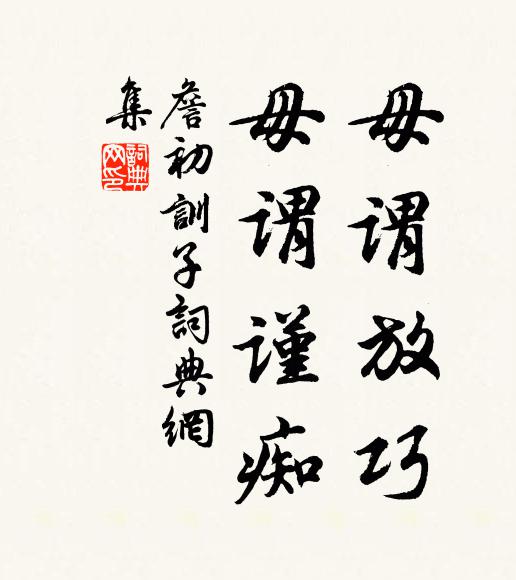 毋谓放巧
毋谓谨痴
詹初訓子詞典網
集
詞典
网印